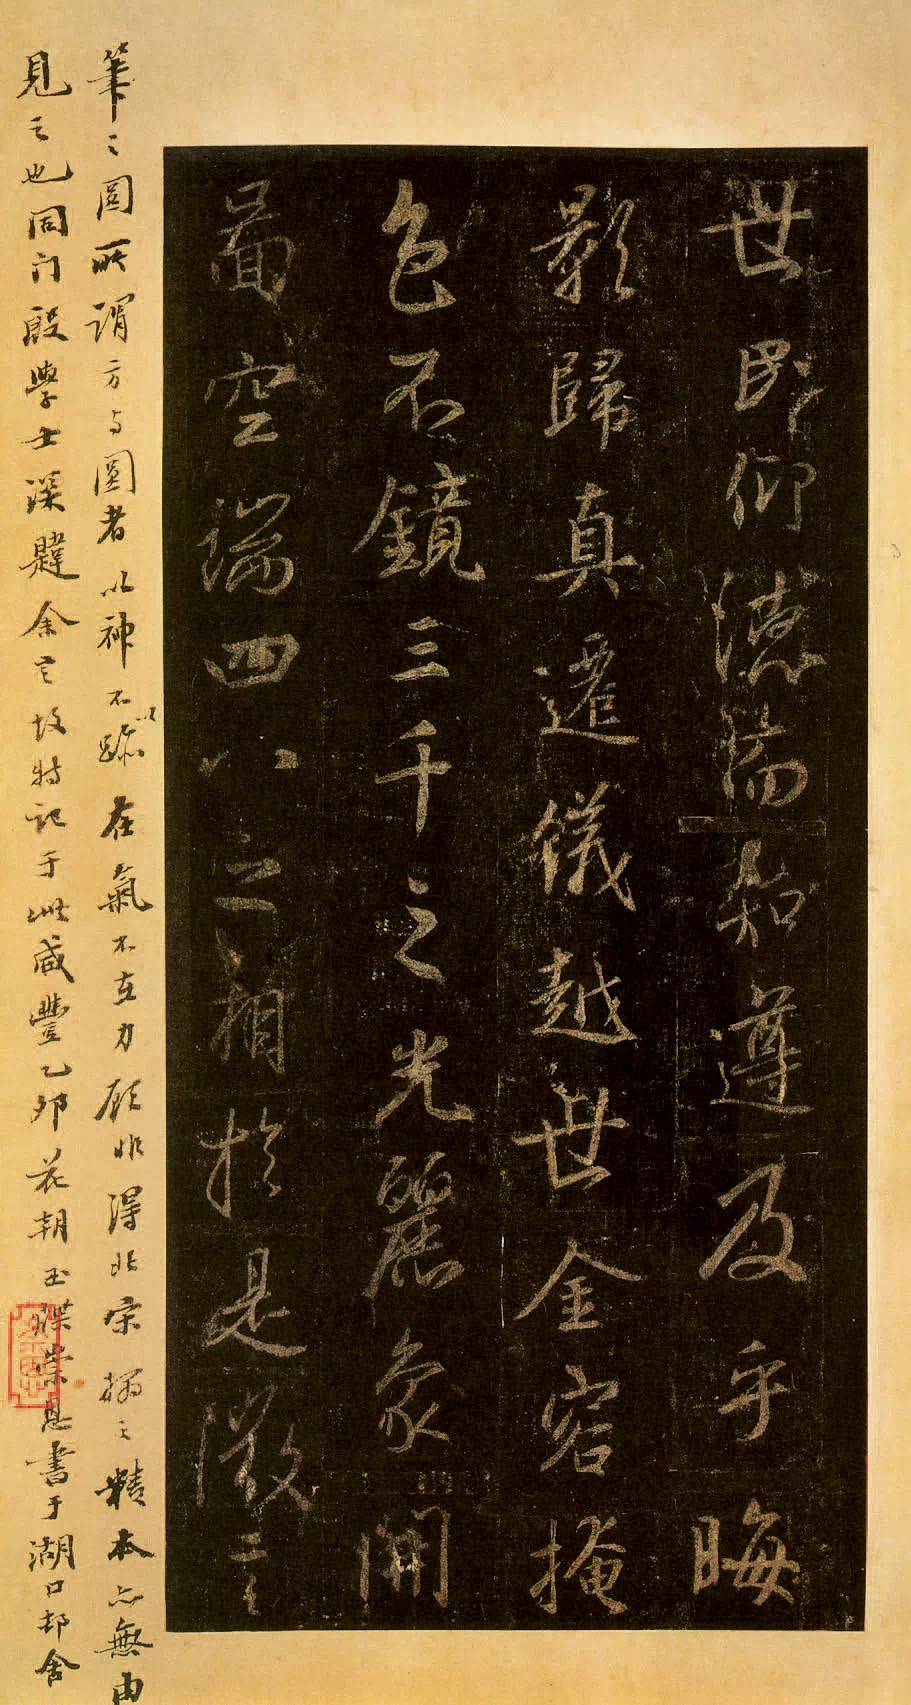 世民仰德而知遵及乎晦
影歸真遷儀越世金容掩
色不鏡三千之光麗象開
啚空端四八之相於是微言
筆之圓所謂方與圓者以神不以跡在氣不在力顧非得北宋搨之精本亦無由
見之也同門殷學士深韙余言故特記于此咸豐乙卯花朝玉牒崇恩書于湖口邨舍